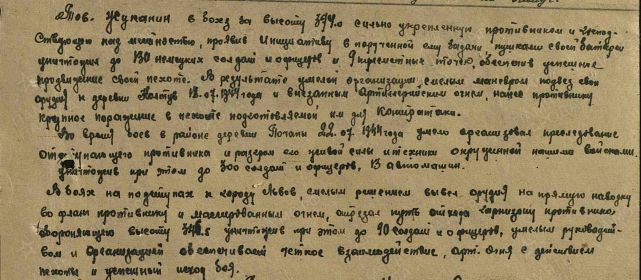 Тов. Жупанин в боях за высоту 394.0 сильно укрепленную противником и господ-
ствующую над местностью, проявив инициативу в порученной ему задачи, пушками своей батареи
уничтожил до 130 немецких солдат и офицеров и 9 пулеметных точек, обеспечив успешное
продвижение своей пехоте. В результате умелой организации смелым маневром подвез свои
орудия к деревни Колтув 18.07.1944 года и внезапным артиллерийским огнем, нанес противнику
крупное поражение в пехоте подготовляемой им для контратаки.
Во время боев в районе деревни Почапы 22.07.1944 года умело организовал преследование
отступающего противника и разгром его живой силы и техники окруженной нашими войсками.
уничтожив при этом до 300 солдат и офицеров, 13 автомашин.
В боях на подступах к городу Львов, смелым решением вывел орудия на прямую наводку
во фланг противнику и массированным огнем, отрезал путь отхода гарнизону противника
обороняющего высоту уничтожив при этом до 90 солдат и офицеров, умелым руководст-
вом и организацией обеспечивает четкое взаимодействие, арт. огня с действием
пехоты и успешный исход боя.